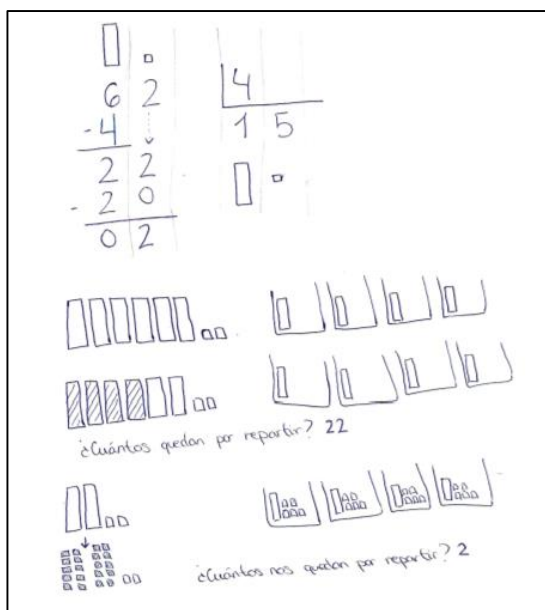 6 2 4
-4 1 5
2 2
- 2 0
0 2
¿Cuántos quedan por repartir? 22
¿Cuántos nos quedan por repartir? 2